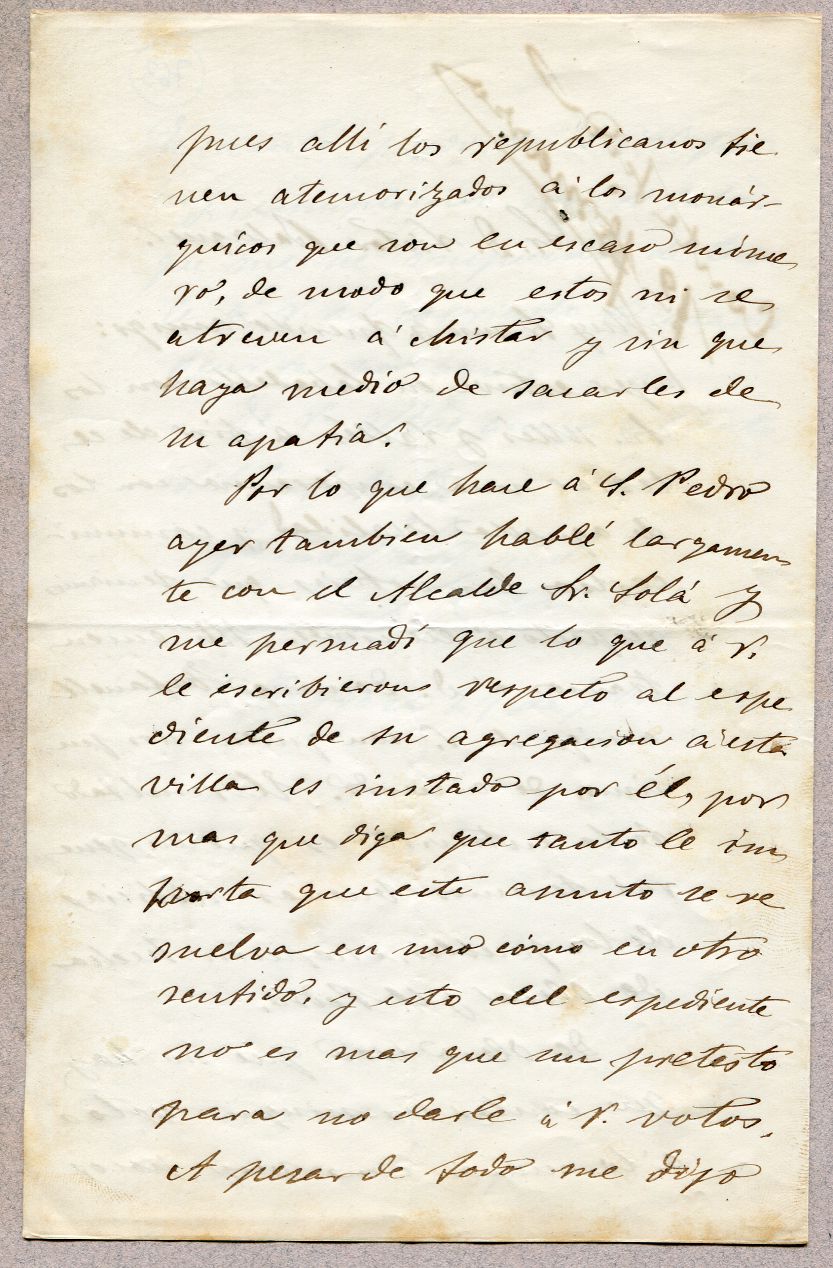 pues allí los republicanos tie
nen atemorizados á los monár-
quicos que son en escaso núme
ro, de modo que estos ni se
atreven á chistar y sin que
haya medio de sacarles de
su apatia.
Por lo que hace á S. Pedro
ayer tambien hablé largamen
te con el Alcalde Sr. Solá y
me permadí que lo que á V.
le escribieron respecto al espe
diente de su agregacion á esta
villa es instado por él, por
mas que diga que tanto le im
porta que este asunto se re
suelva en uno cómo en otro
sentido, y esto del espediente
no es mas que un pretesto
para no darle á V. votos.
A pesar de todo me dijo